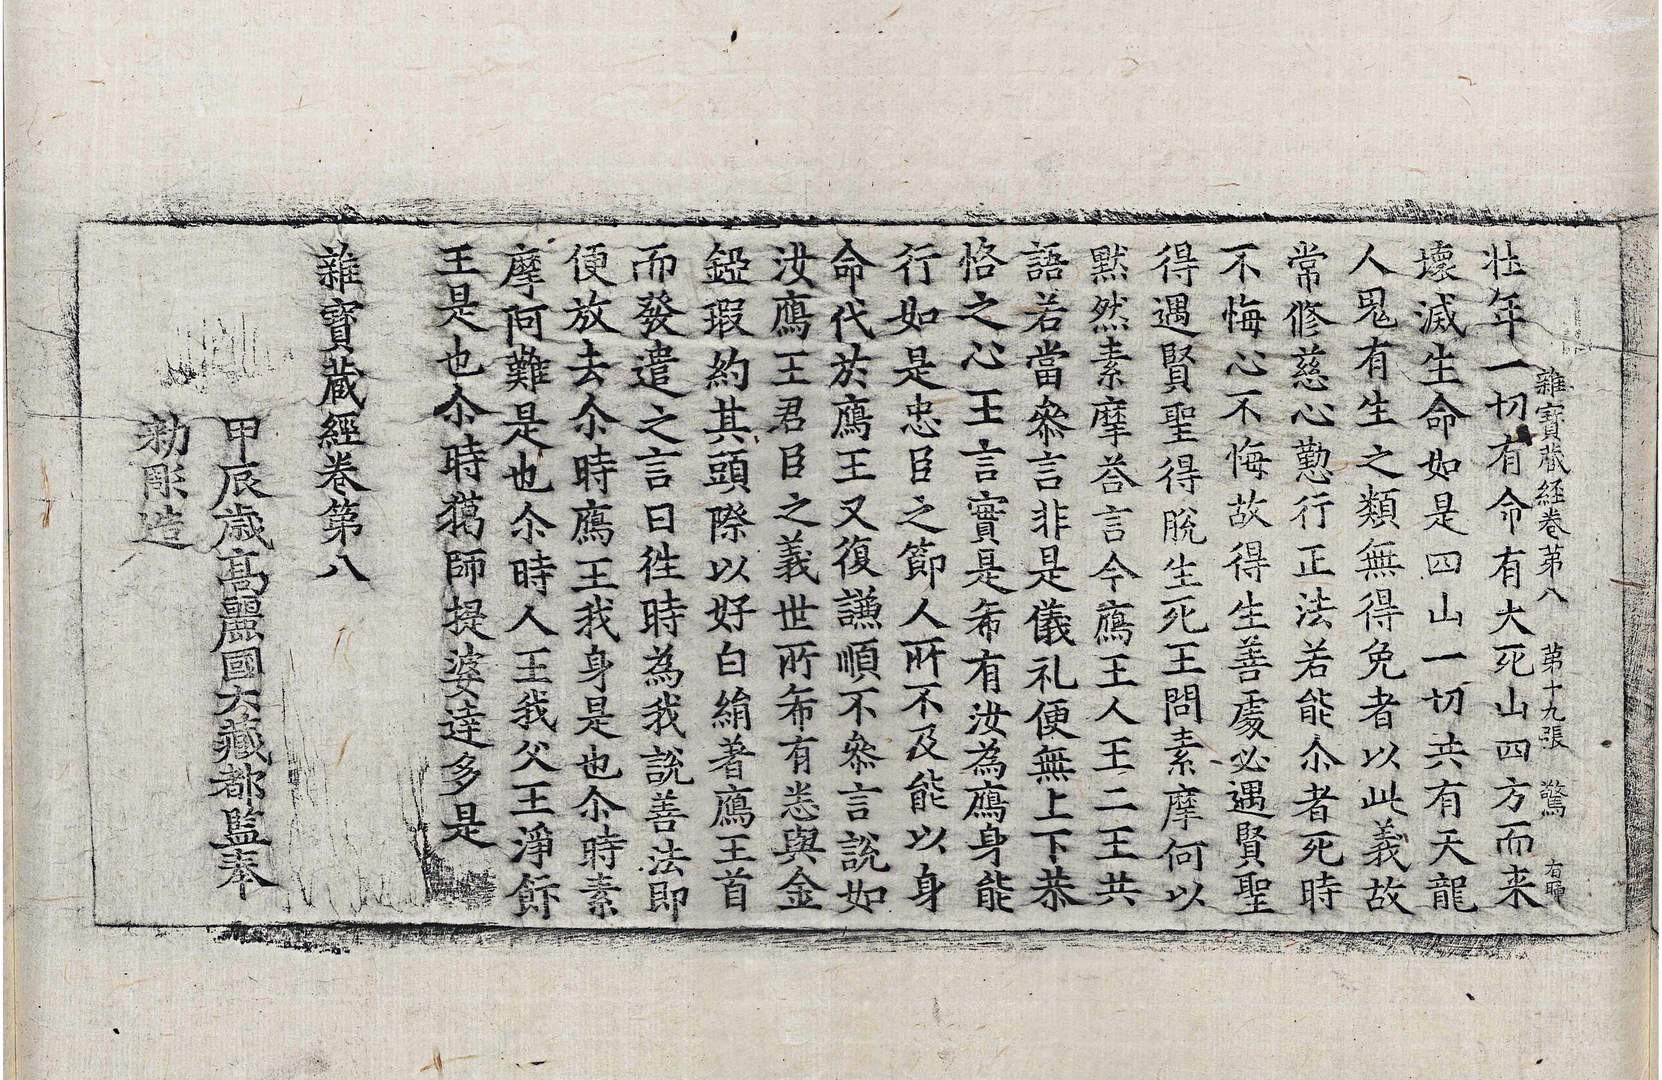 雜寶藏経卷第八　第十九張　驚
壮年一切有命有大死山四方而来
壞滅生命如是四山一切共有天龍
人鬼有生之類無得免者以此義故
常修慈心懃行正法若能尒者死時
不悔心不悔故得生善處必遇賢聖
得遇賢聖得脫生死王問素摩何以
默然素摩荅言今鴈王人王二王共
語若當叅言非是儀礼便無上下恭
恪之心王言實是希有汝為鴈身能
行如是忠臣之節人所不及能以身
命代於鴈王又復謙順不叅言說如
汝鴈王君臣之義世所希有悉與金
鋜瑕約其頭際以好白絹著鴈王首
而發遣之言曰徃時為我說善法即
便放去尒時鴈王我身是也尒時素
摩阿難是也尒時人王我父王淨飰
王是也尒時獦師提婆達多是
雜寶藏經卷第八
甲辰歲高麗國大藏都監奉
勑彫造